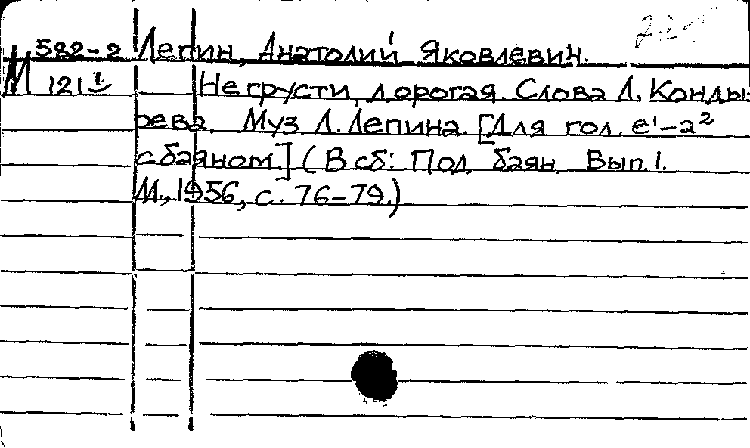 М 582-2 Лепин, Анатолий Яковлевич.
121 Не грусти, дорогая. Слова Л. Конды-
рева. Муз А. Лепина. [Для гол. e¹–a²
с баяном.] (В сб: Под баян. Вып. 1.
М., 1956, с. 76–79.)